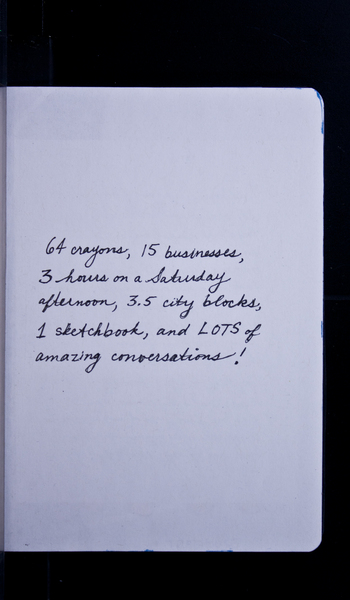 64 crayons, 15 businesses,
3 hours on a Saturday
afternoon, 3.5 city blocks,
1 sketchbook, and LOTS of
amazing conversations!